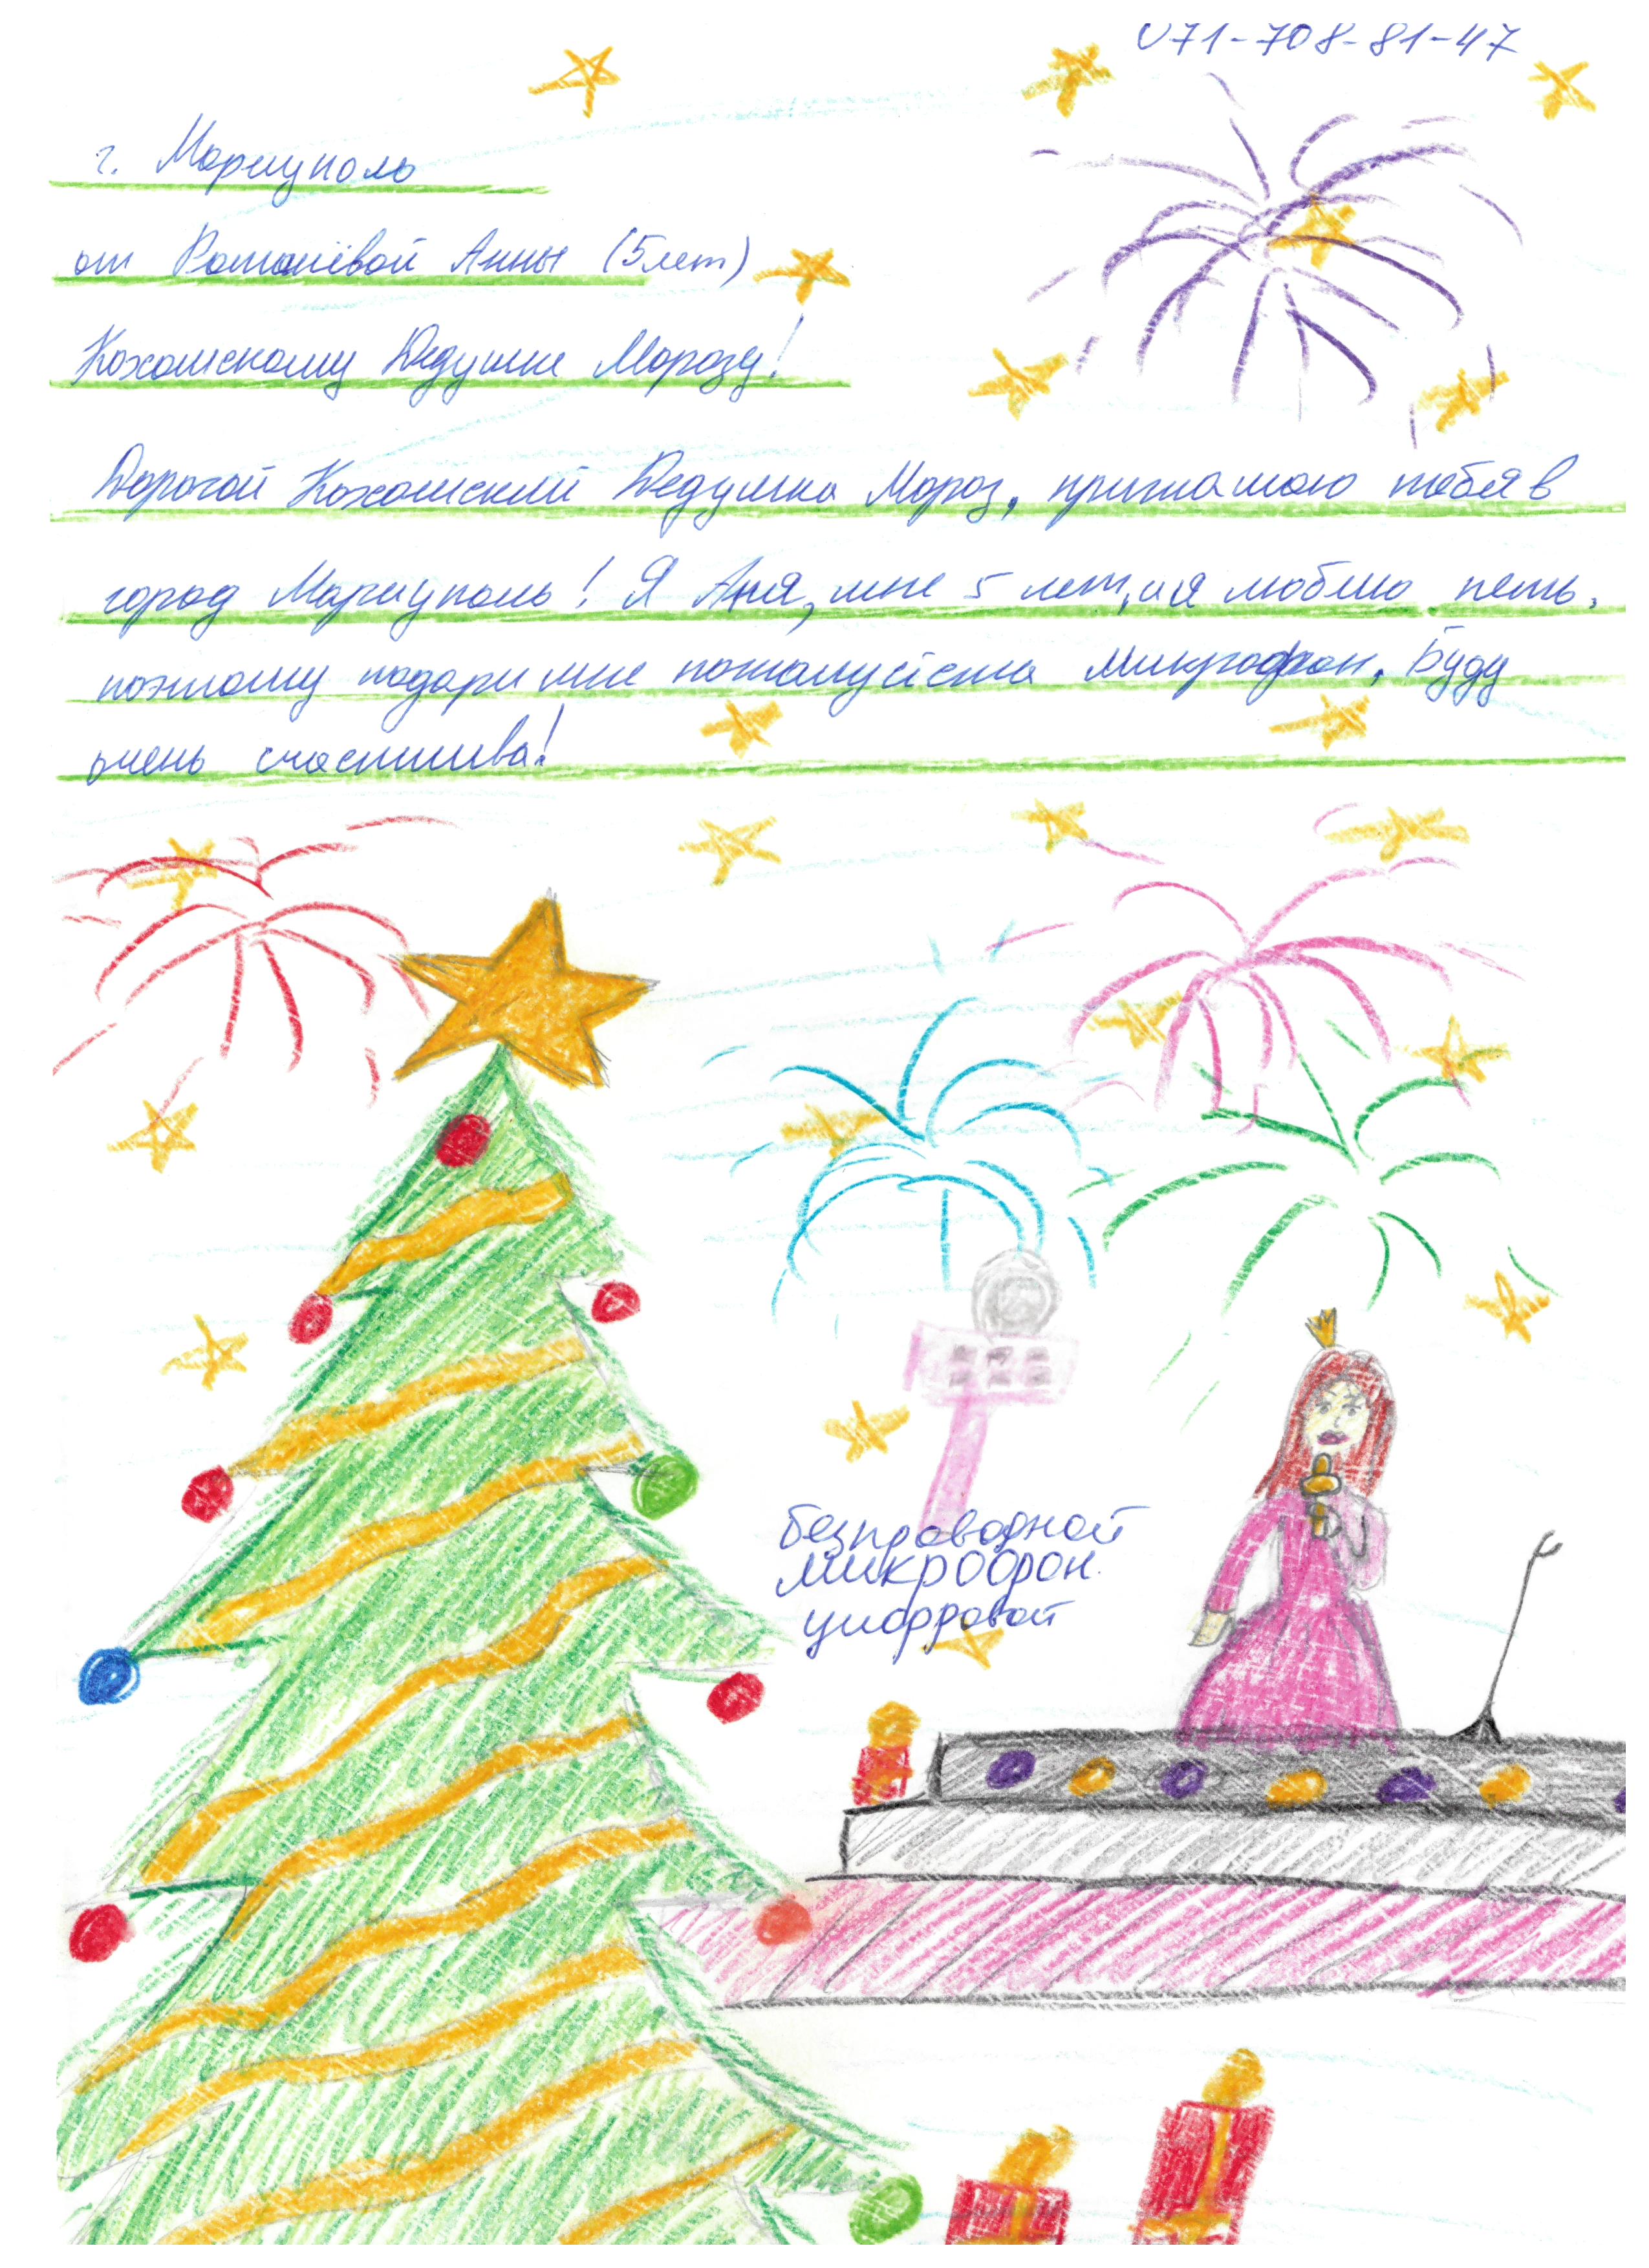 071-708-81-47
г. Мариуполь
от Ромашёвой Анны (5 лет)
Кохомскому Дедушке Морозу!
Дорогой Кохомский Дедушка Мороз, приглашаю тебя в
город Мариуполь! Я Аня, мне 5 лет, и я люблю петь,
поэтому подари мне пожалуйста микрофон. Буду
очень счастлива!
безпроводной
микрофон
цифровой